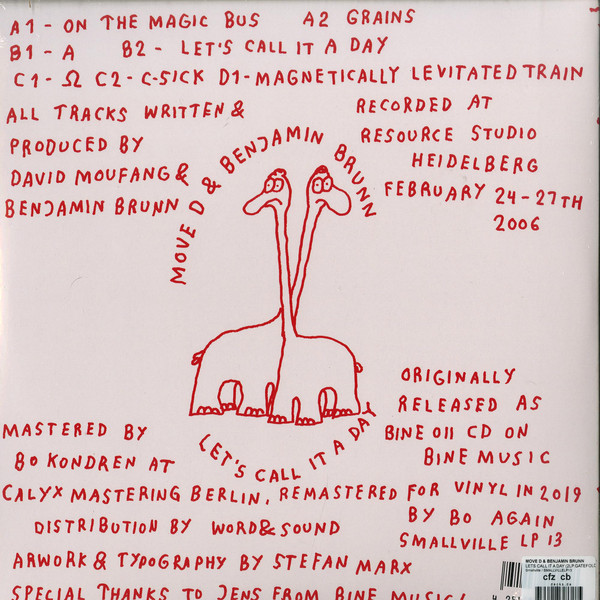 A1 - ON THE MAGIC BUS A2 GRAINS
B1 - A B2 - LET'S CALL IT A DAY
C1 - Ω C2 - C-SICK D1 - MAGNETICALLY LEVITATED TRAIN
ALL TRACKS WRITTEN &
PRODUCED BY
DAVID MOUFANG &
BENJAMIN BRUNN
RECORDED AT
RESOURCE STUDIO
HEIDELBERG
FEBRUARY 24-27TH
2006
MOVE D & BENJAMIN BRUNN
LET'S CALL IT A DAY
ORIGINALLY
RELEASED AS
BINE 011 CD ON
BINE MUSIC
MASTERED BY
BO KONDREN AT
CALYX MASTERING BERLIN, REMASTERED FOR VINYL IN 2019
BY BO AGAIN
DISTRIBUTION BY WORD & SOUND
SMALLVILLE LP 13
ARWORK & TYPOGRAPHY BY STEFAN MARX
SPECIAL THANKS TO JENS FROM BINE MUSIC!
MOVE D & BENJAMIN BRUNN
LETS CALL IT A DAY (2LP,GATEFOLD
cfz cb
4 251